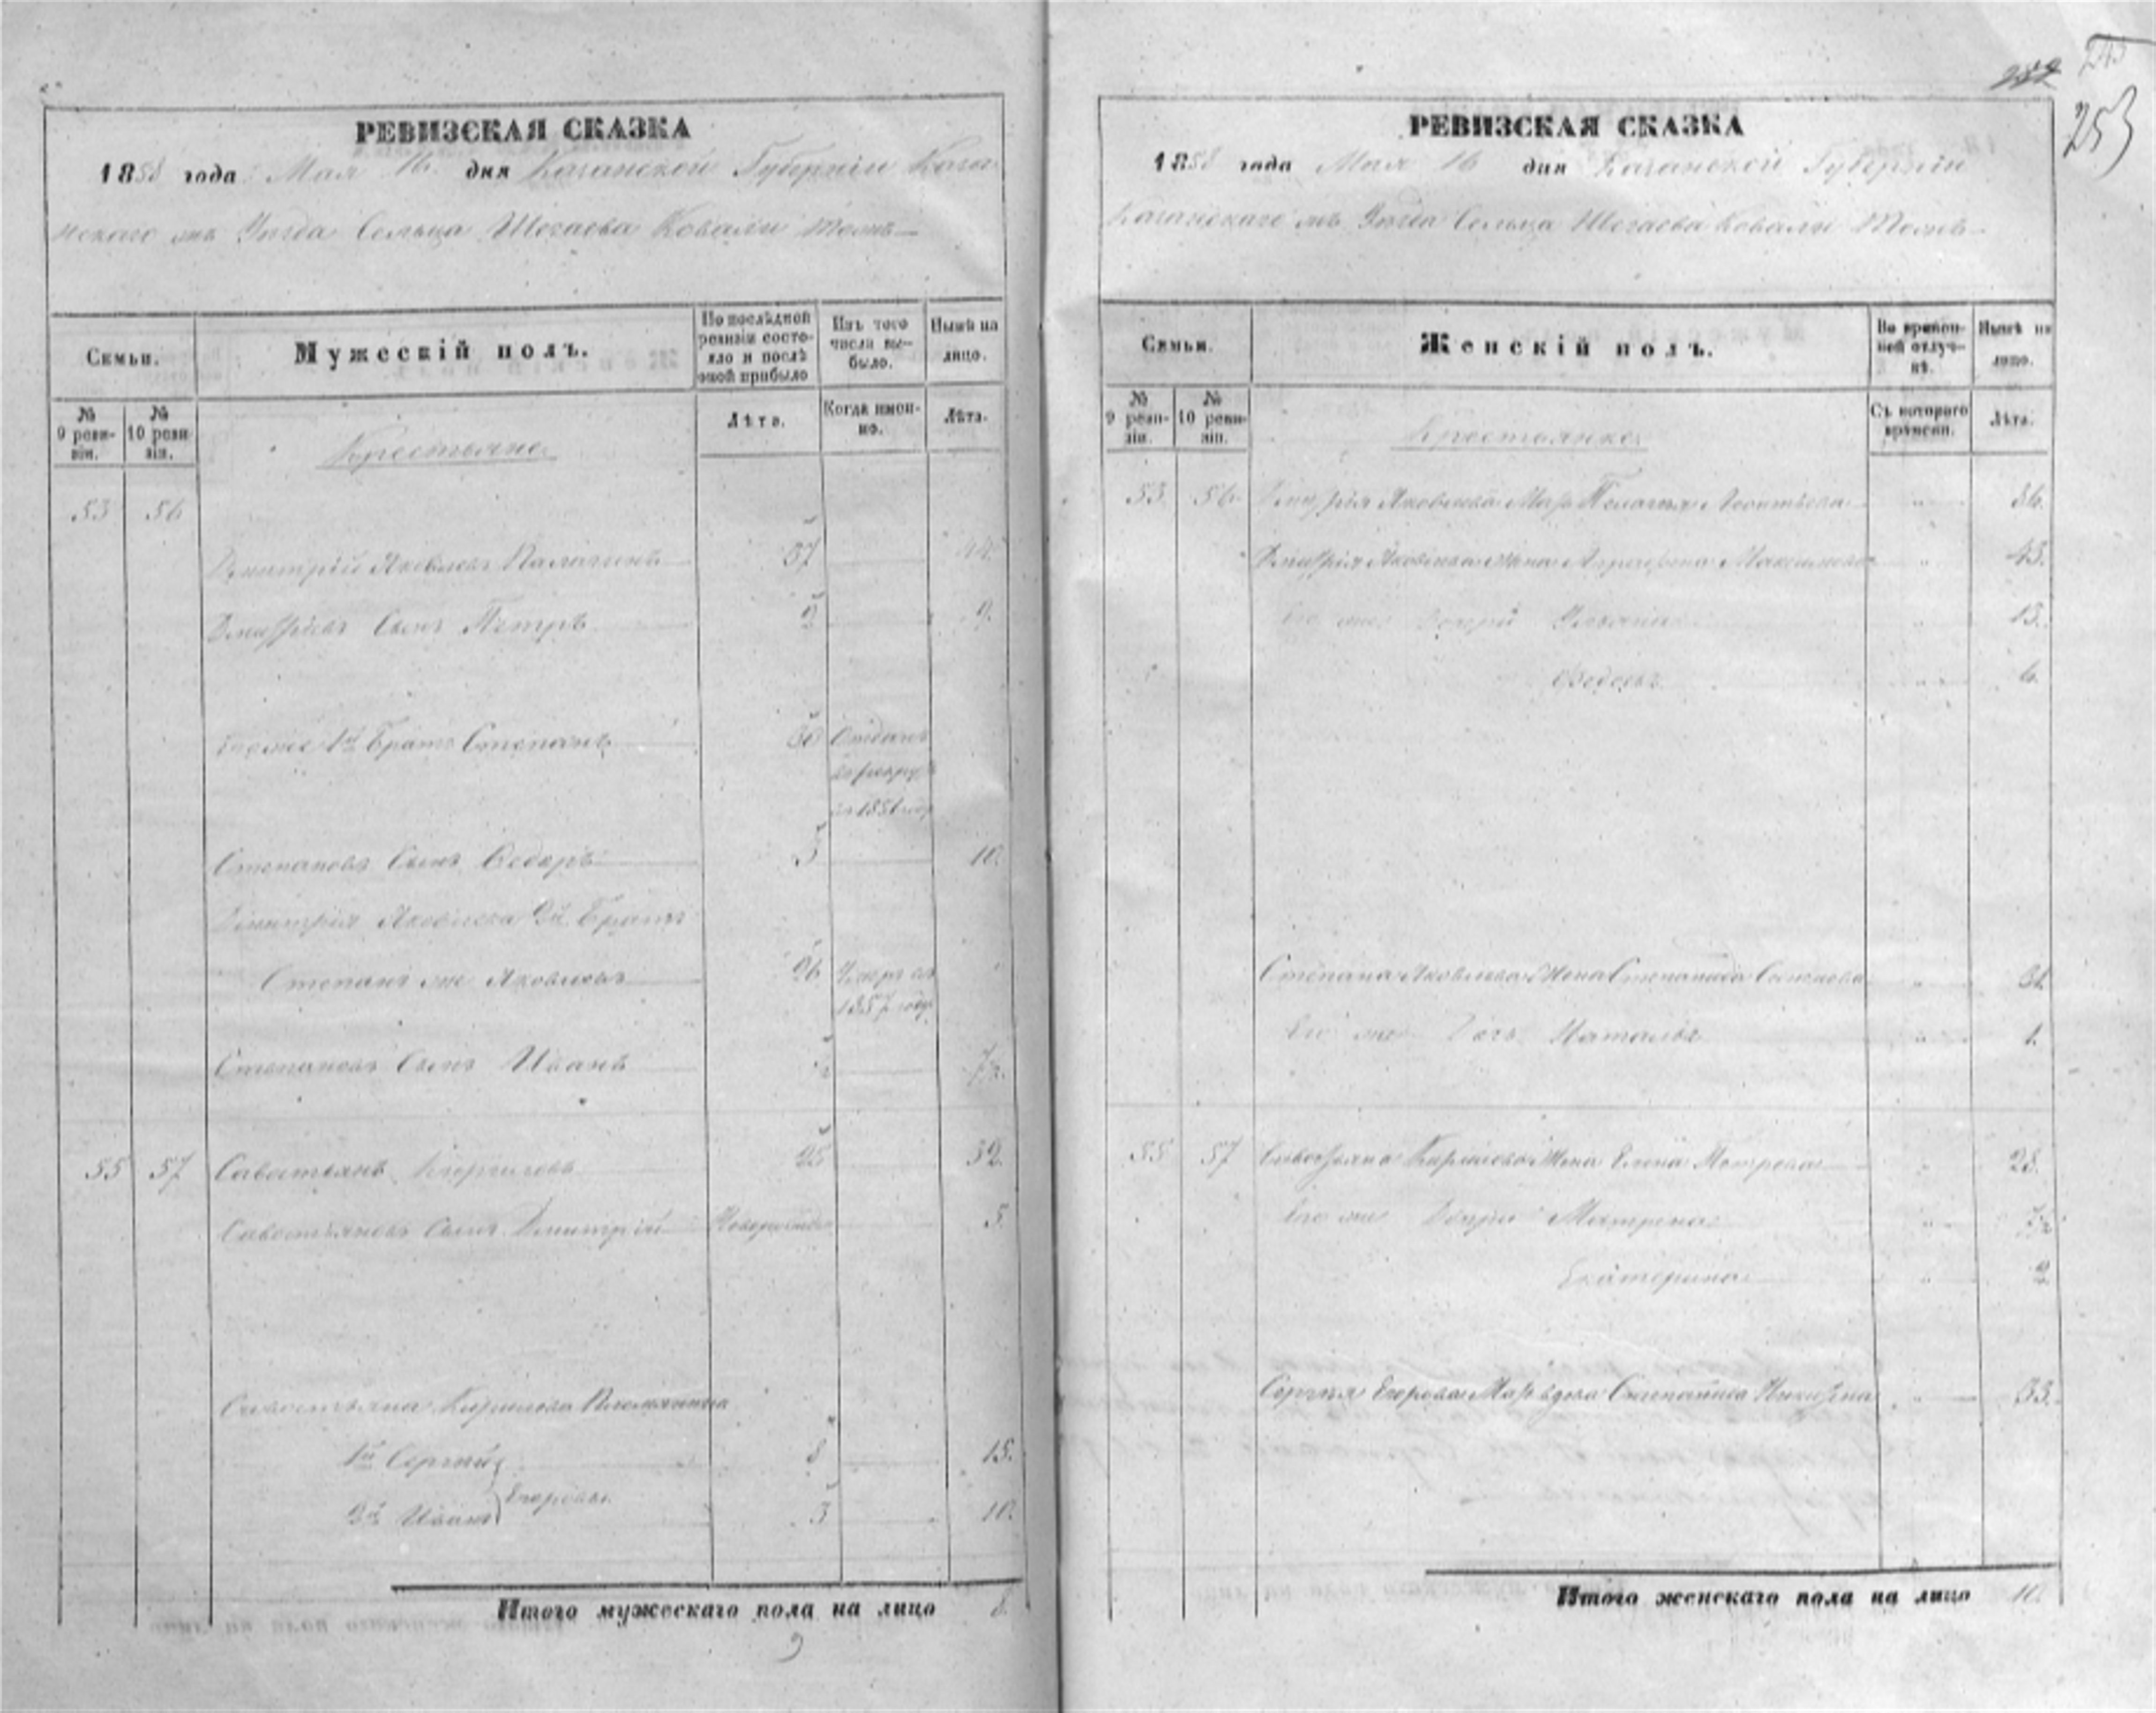 РЕВИЗСКАЯ СКАЗКА
1858 года Мая 16 дня Казанской Губерніи Каза
нскаго Уѣзда Сельца Шегаева Ковали тожъ
Семьи.
Мужескій полъ.
По послѣдней ревизіи состояло и послѣ оной прибыло
Изъ того числа выбыло.
Нынѣ на лицо.
№ 9 ревизіи.
№ 10 ревизіи.
Лѣта.
Когда именно.
Лѣта.
Крестьяне.
53 56
Димитрій Яковлевъ 37 44.
Дмитріевъ Сынъ Петръ 2 9.
Его же 1й Братъ Степанъ 30 Отданъ
въ 1851 году
Степановъ Сынъ Ѳедоръ 3 10.
Димитрія Яковлева 2й Братъ
Степанъ же Яковлевъ 26 Умеръ въ
1857 году
Степановъ Сынъ Иванъ
55 57 Савастьянъ Кириловъ 25 32.
Савостьяновъ Сынъ Димитрій Новорожден 5.
Савостьяна Кирилова Племянники
1й Сергѣй 8 15.
Егоровы.
2й Иванъ 3 10.
Итого мужескаго пола на лицо 8.
252
253
РЕВИЗСКАЯ СКАЗКА
1858 года Мая 16 дня Казанской Губерніи
Казанскаго Уѣзда Сельца Шегаева Ковали тожъ
Семьи.
Женскій полъ.
Во временной отлучкѣ.
Нынѣ на лицо.
№ 9 ревизіи.
№ 10 ревизіи.
Съ котораго времени.
Лѣта.
Крестьянке.
53. 56. Дмитрія Яковлева Мать Пелагея Леонтьева
Дмитрія Яковлева Жена Максимова 43.
Его же Дочри 13.
6.
Степана Яковлева Жена Степанида 31.
Его же Дочь Наталья 1.
55 57 Савостьяна Кирилова Жена Елена Петрова 28.
Его же Дочри Матрена
Екатерина 2.
Сергѣя Егорова Мать вдова Никитина 33.
Итого женскаго пола на лицо 10.